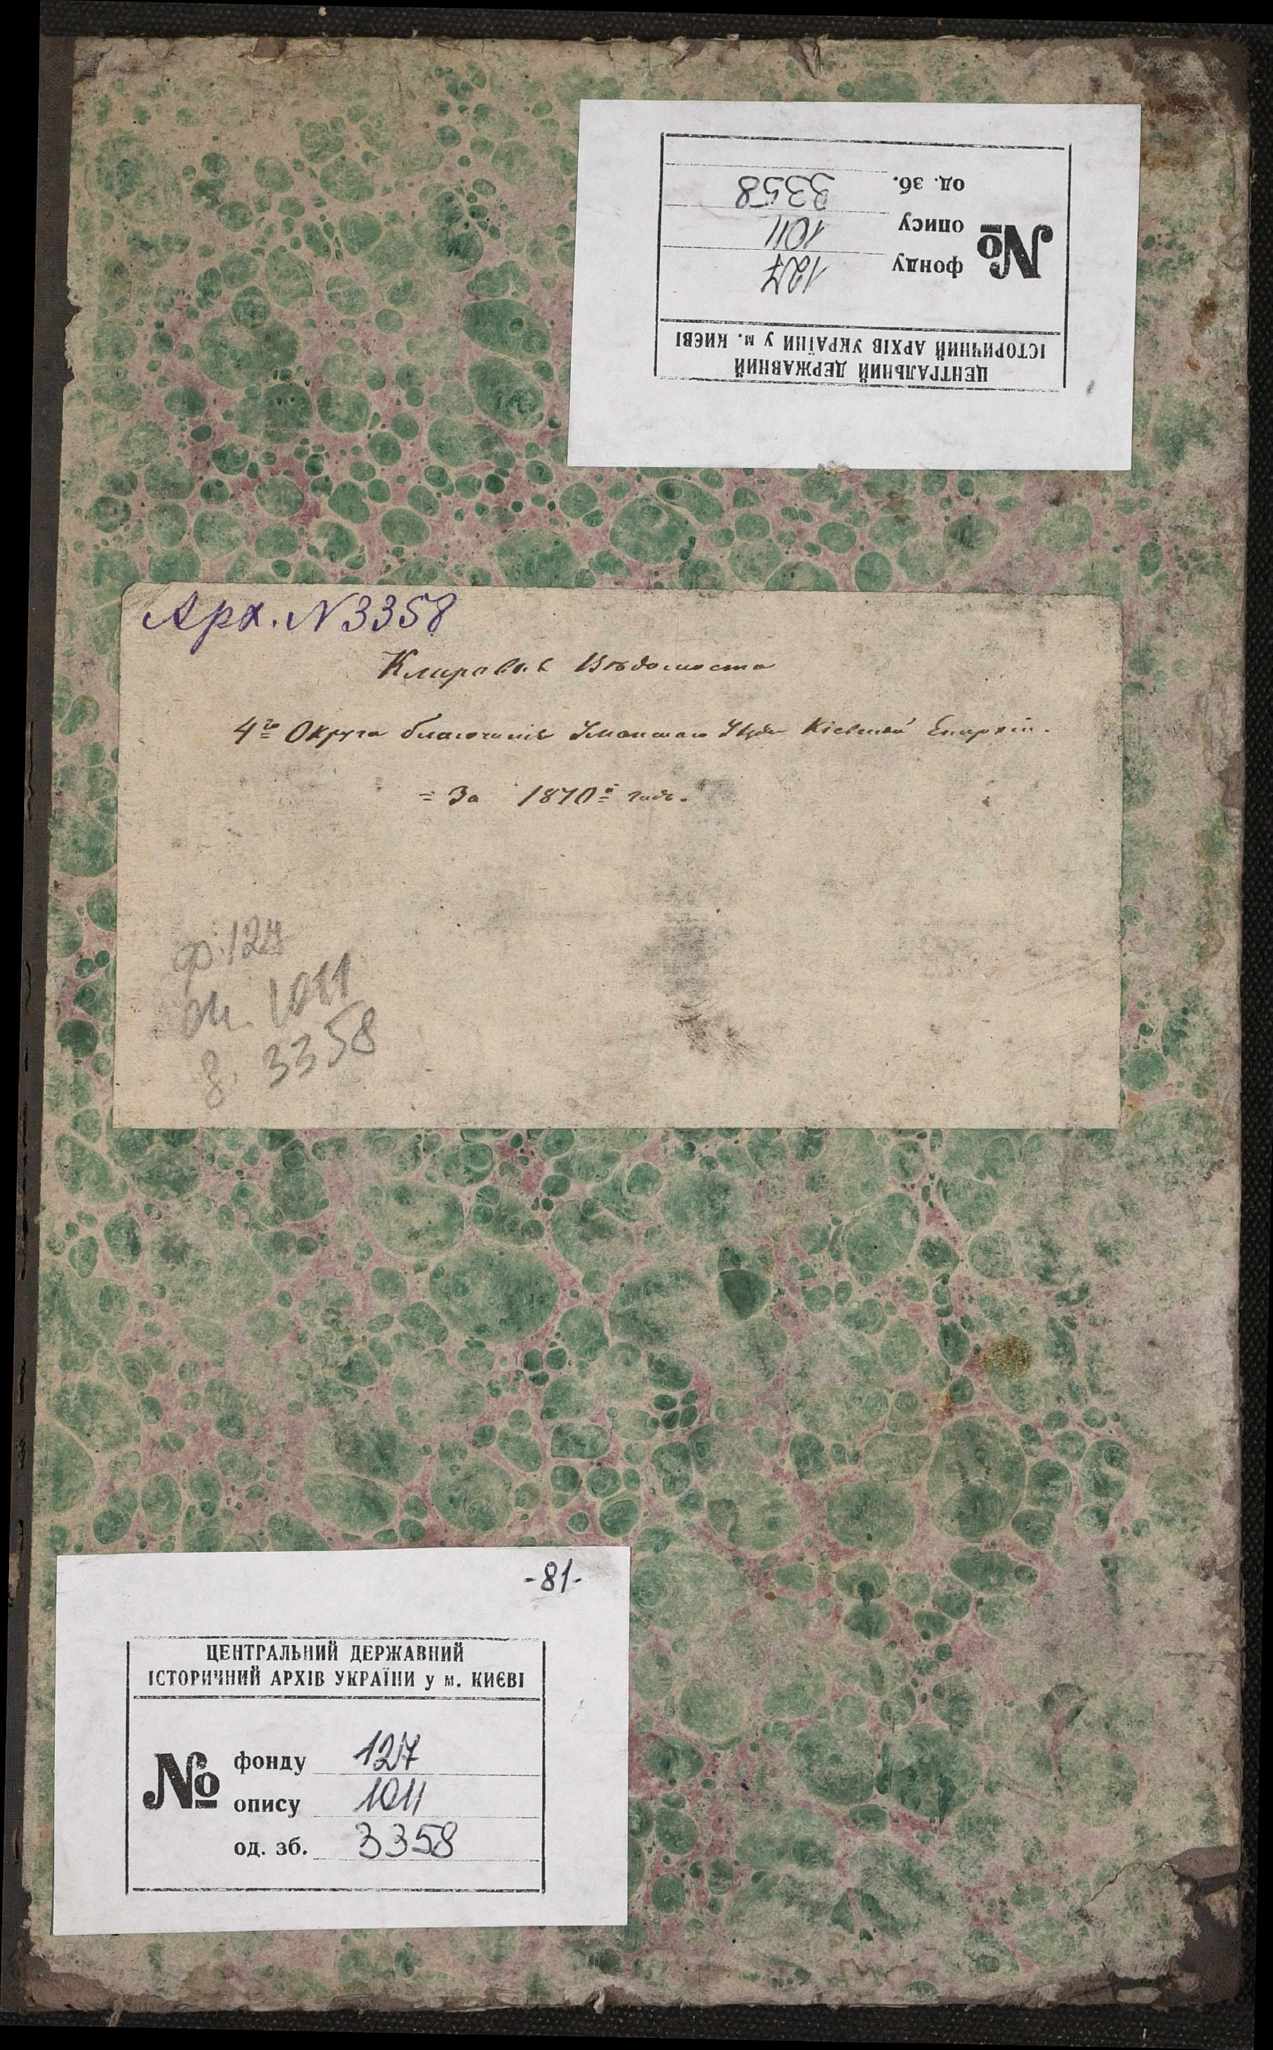 ЦЕНТРАЛЬНИЙ ДЕРЖАВНИЙ
ІСТОРИЧНИЙ АРХІВ УКРАЇНИ у м. КИЄВІ
№
фонду 127
опису 1011
од. зб. 3358
Арх. N 3358
Клировые Вѣдомости
4го Округа благочинія Уманскаго Уѣзда Кіевской Епархіи.
= За 1870й годъ.
ф. 127
оп. 1011
д. 3358
-81-
ЦЕНТРАЛЬНИЙ ДЕРЖАВНИЙ
ІСТОРИЧНИЙ АРХІВ УКРАЇНИ у м. КИЄВІ
№
фонду 127
опису 1011
од. зб. 3358